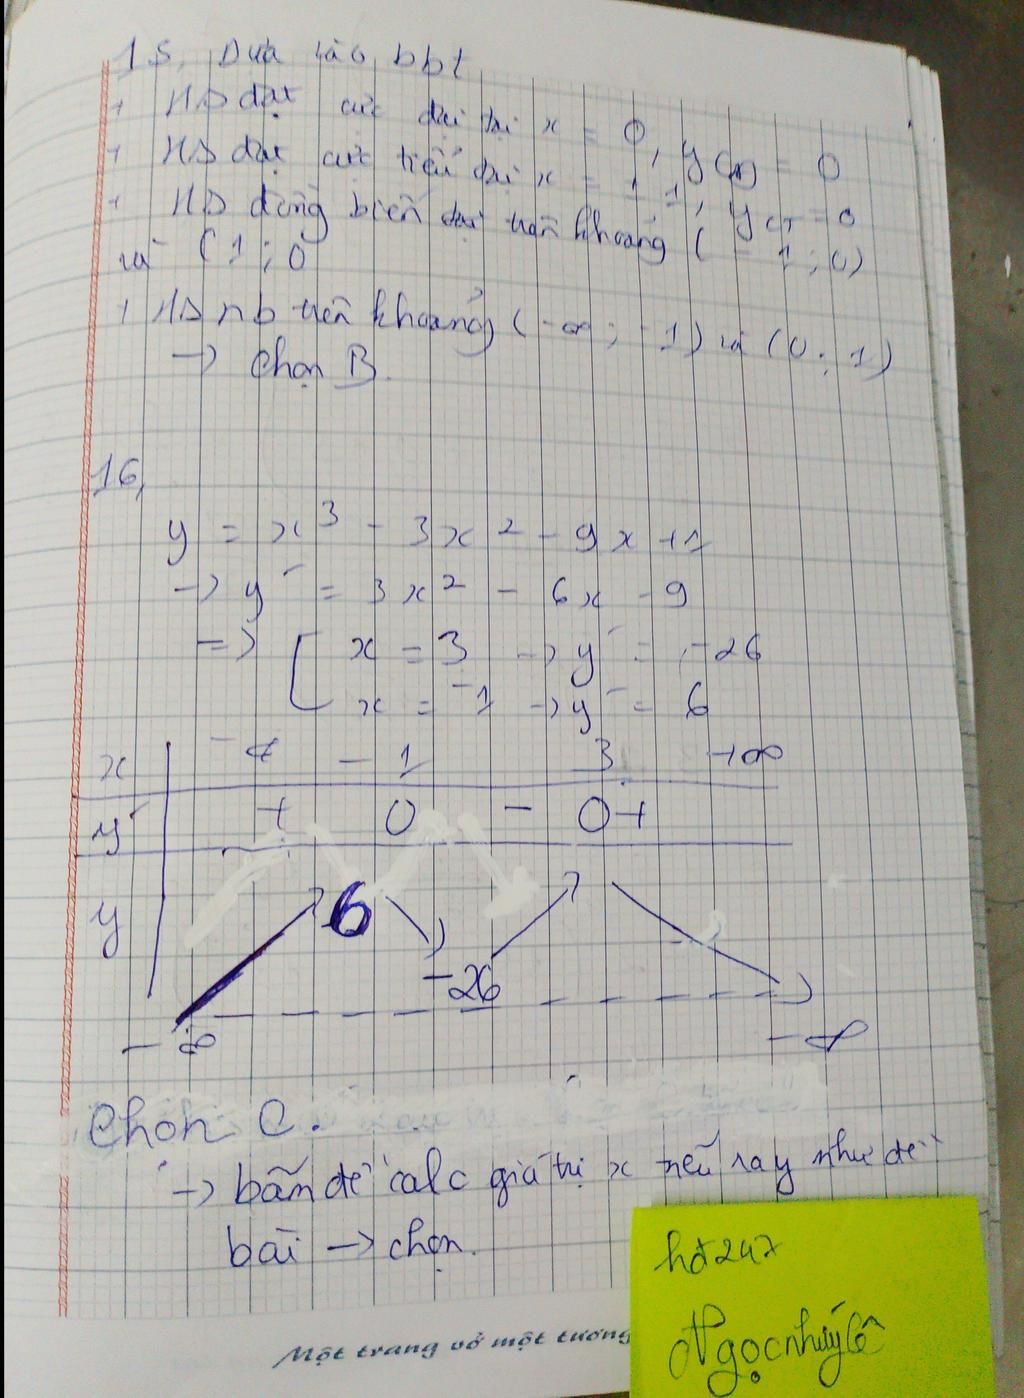 15, Dựa vào bbt
+ HS đạt cực đại tại x = 0, yCĐ = 0
+ HS đạt cực tiểu tại x = ± 1, yCT = 0
+ HS đồng biến trên khoảng ( - 1 ; 0)
và ( 1 ; 0
+ HS nb trên khoảng ( -∞ ; -1) và (0 ; 1)
→ chọn B.
16,
y = x³ - 3x² - 9x + 1
→ y' = 3x² - 6x - 9
=> [ x = 3 → y' = -26
x = -1 → y' = 6
x -∞ -1 3 +∞
y' + 0 - 0 +
y 6
-26
-∞ -∞
Chọn C.
→ bấm để calc giá trị x nếu ray như đề
bài → chọn.
hđ247
Ngọcnhưýlê
Một trang vở một tương